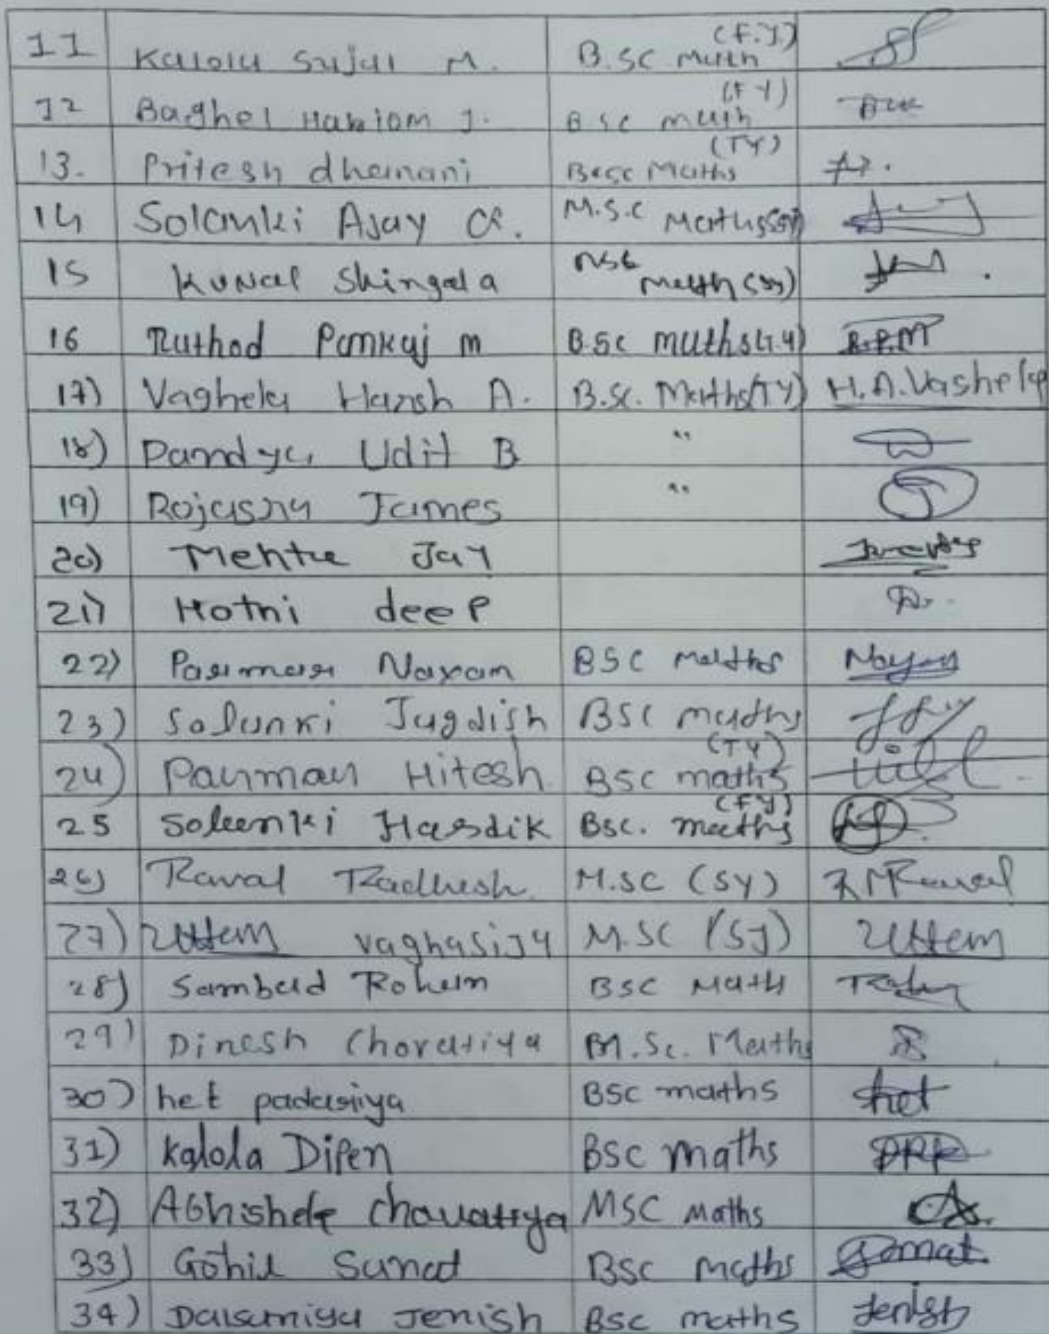 11 Kalola Sujal M. B.SC Math (F.Y.)
12 Baghel Hariom J. B.SC math (F Y)
13. Pritesh dhamani B.sc Maths (TY)
14 Solanki Ajay M.S.C Maths(SY)
15 Kunal Shingala Msc Math (SY)
16 Rathod Pankaj m B.Sc maths(T.Y) R.P.M
17) Vaghela Harsh A. B.Sc. Maths(TY) H.A.Vaghela
18) Pandya Udit B "
19) Rojasra James "
20) Mehta Jay
21) Hotni deep
22) Parmar Nayan BSC maths Nayan
23) Solanki Jagdish BSC maths
24) Parmar Hitesh BSC maths (TY)
25 Solanki Hardik Bsc. maths (FY)
26) Raval Radhesh M.SC (SY) R M Raval
27) Uttam vaghasiya M.SC (SY) Uttam
28) Sambad Rohan BSC Math
29) Dinesh Chovatiya M.Sc. Maths
30) het padasiya BSC maths het
31) Kalola Dipen BSC maths DRK
32) Abhishek chovatiya MSC Maths
33) Gohil Sumat BSC maths Sumat
34) Dalsaniya Jenish BSC maths Jenish